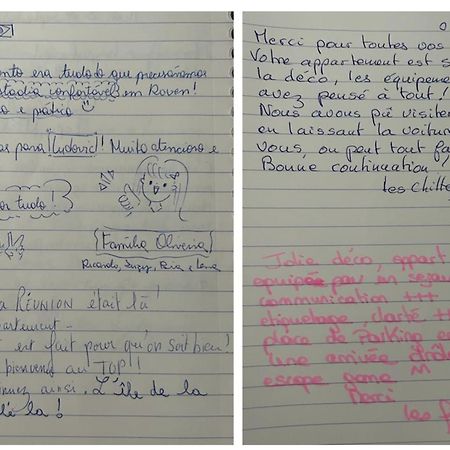 ento era tudo do que precisávamos
estadia confortável em Rouen!
o e prática
as para Ludovic! Muito atencioso e
or tudo!
{Família Oliveira}
Ricardo,
a RÉUNION était là!
partement -
est fait pour qu'on soit bien!
bienvenue au TOP!!
nuez ainsi. L'île de la
là!
Merci pour toutes vos
Votre appartement est s
la déco, les équipeme
avez pensé à tout!
Nous avons pu visiter
en laissant la voiture
vous, on peut tout fa
Bonne continuation!
les chilte
Jolie déco, appart
équipée pour un séjour
communication +++
étiquetage clarté ++
place de Parking e
une arrivée drôle
escape game
Merci
les f